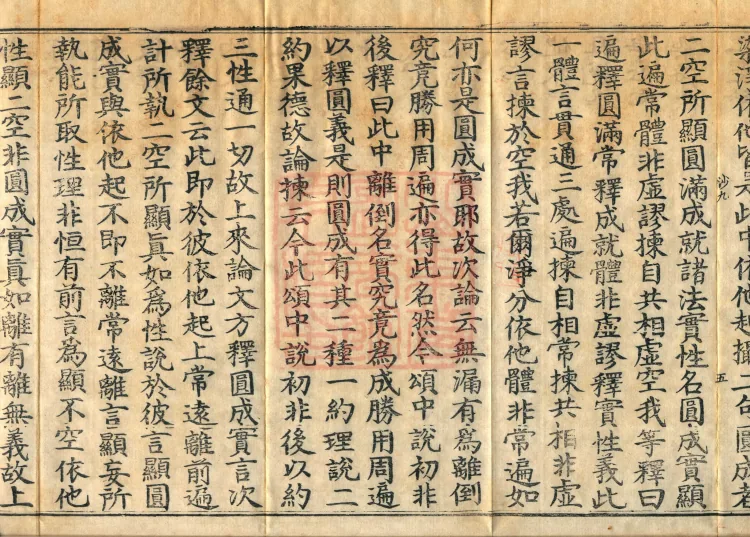 此中依他起攝二句圓成者
沙九
五
二空所顯圓滿成就諸法實性名圓成實顯
此遍常體非虛謬揀自共相虛空我等釋曰
遍釋圓滿常釋成就體非虛謬釋實性義此
一體言貫通三處遍揀自相常揀共相非虛
謬言揀於空我若爾淨分依他體非常遍如
何亦是圓成實耶故次論云無漏有爲離倒
究竟勝用周遍亦得此名然今頌中說初非
後釋曰此中離倒名實究竟爲成勝用周遍
以釋圓義是則圓成有其二種一約理說二
約果德故論揀云今此頌中說初非後以約
三性通一切故上來論文方釋圓成實言次
釋餘文云此即於彼依他起上常遠離前遍
計所執二空所顯眞如爲性說於彼言顯圓
成實與依他起不即不離常遠離言顯妄所
執能所取性理非恒有前言爲顯不空依他
性顯二空非圓成實眞如離有離無義故上